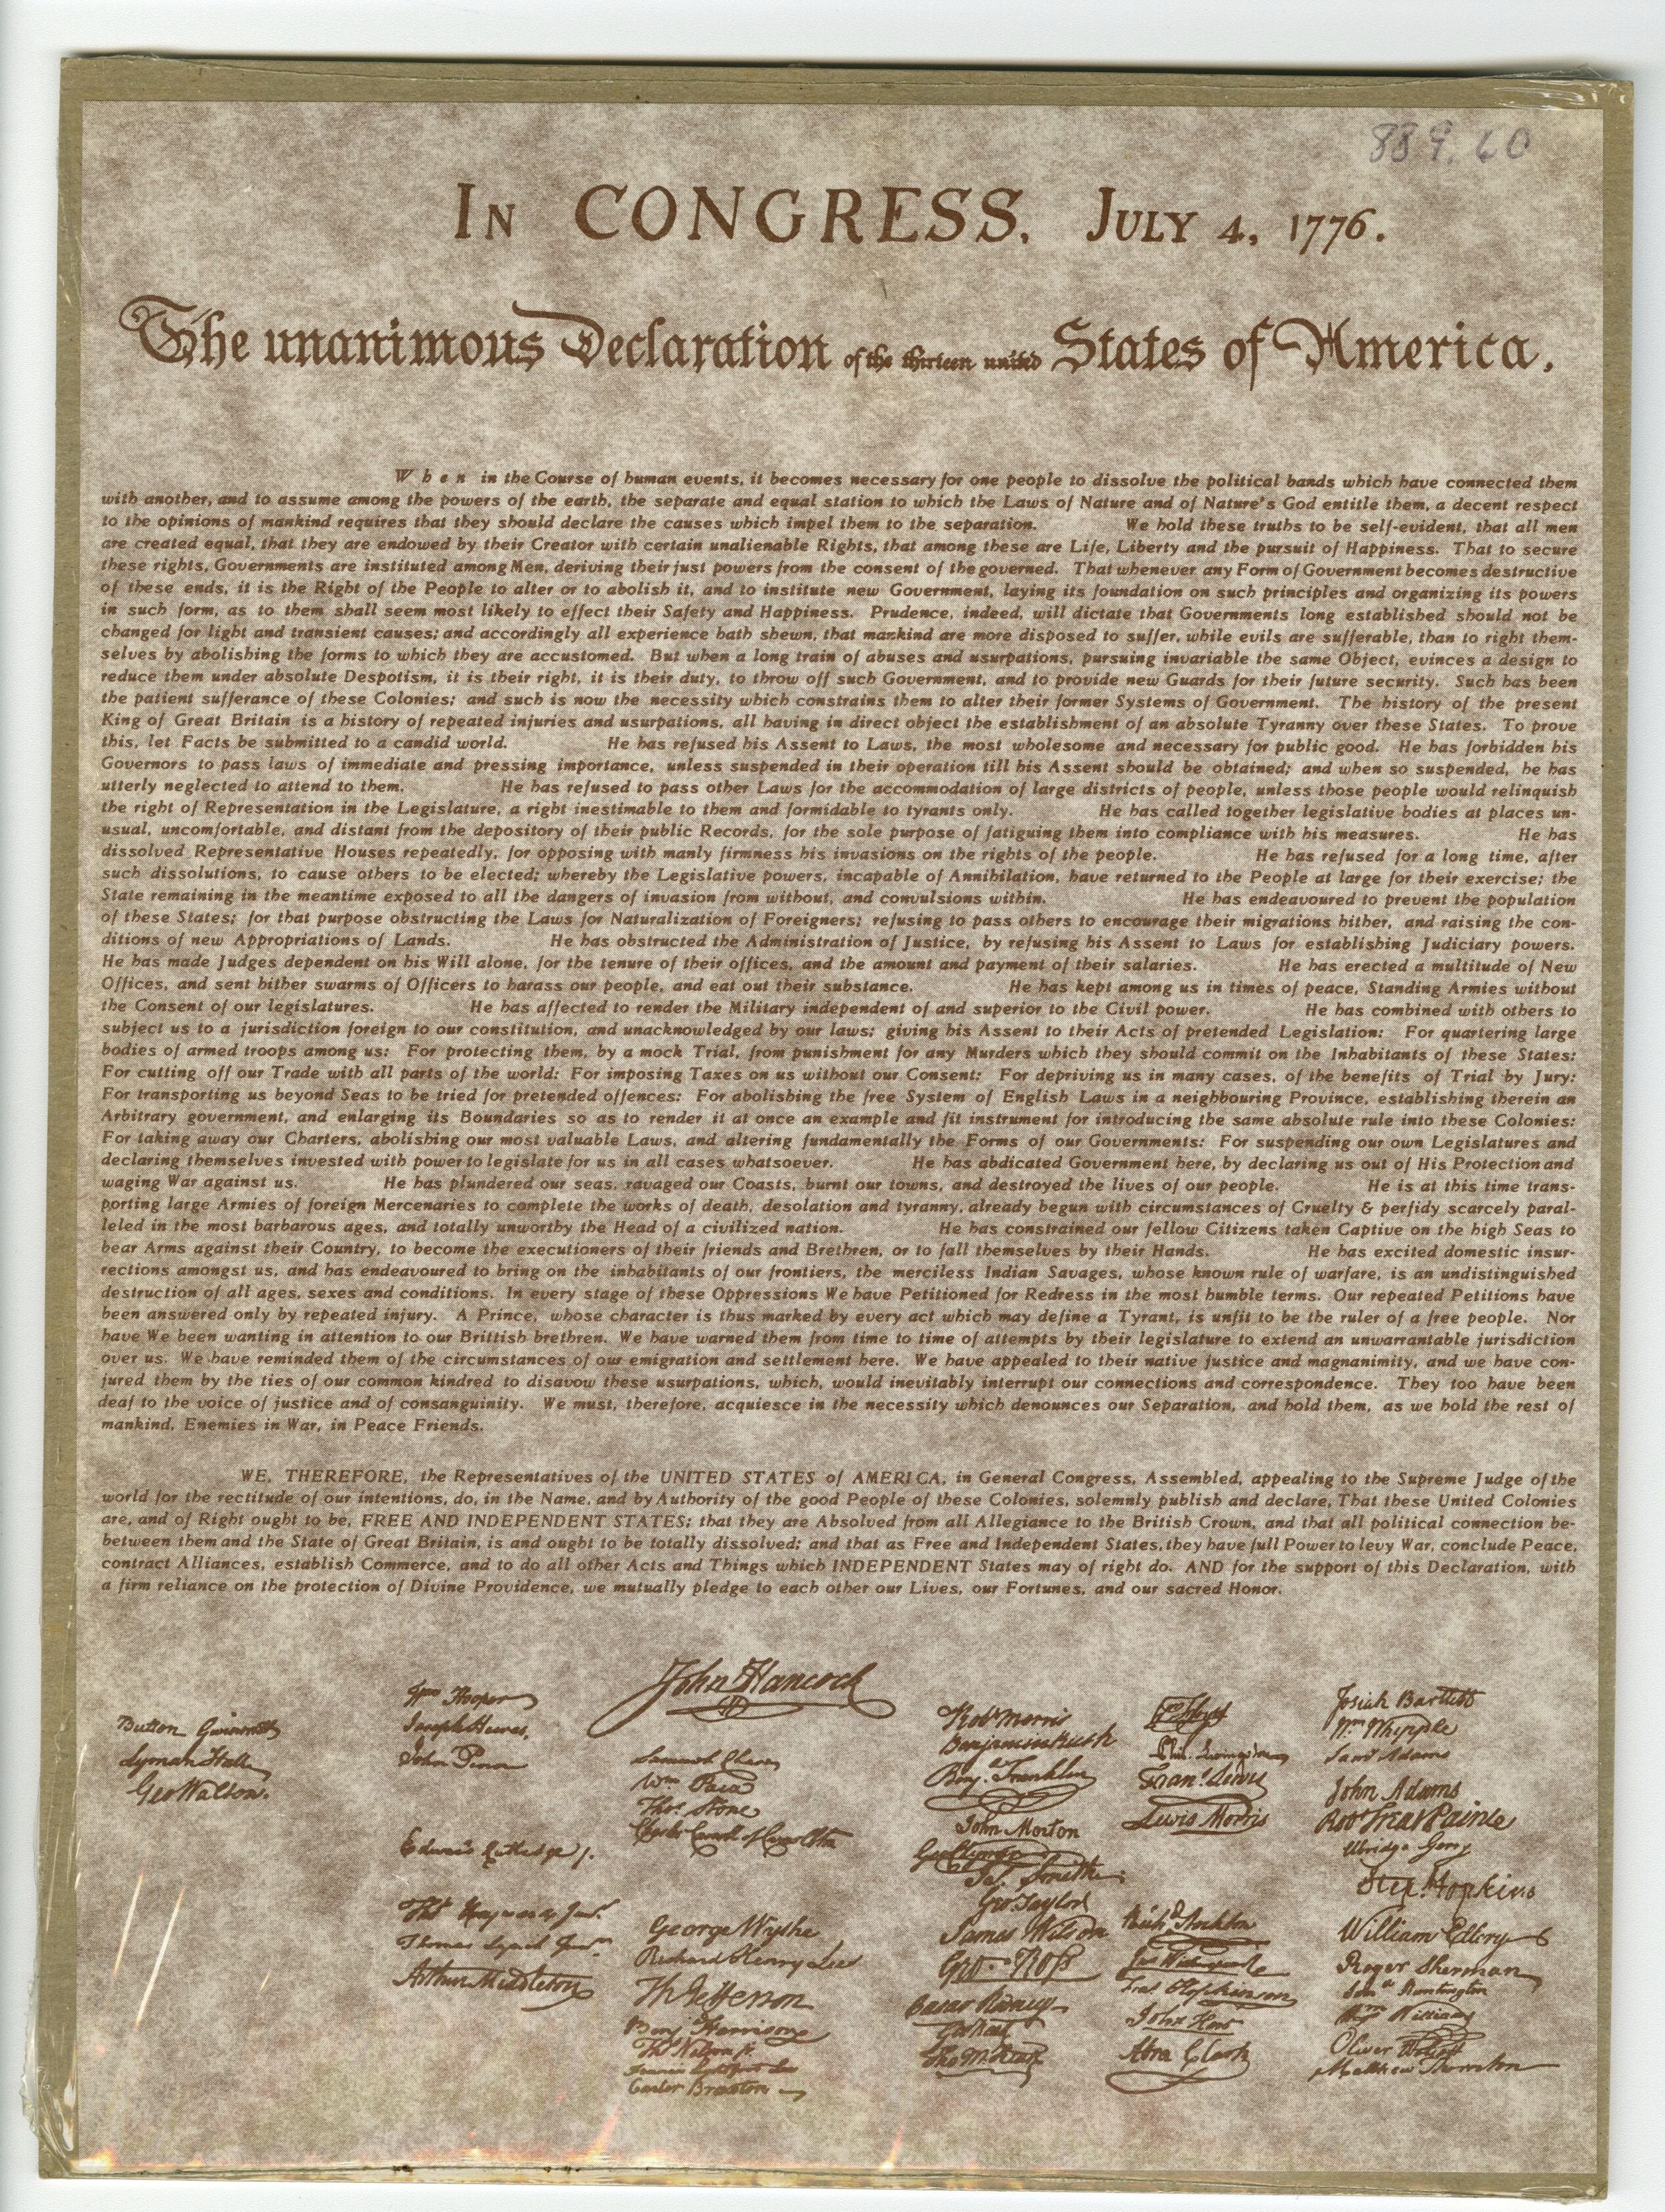 889.60
IN CONGRESS, JULY 4, 1776.
The unanimous Declaration of the thirteen united States of America,
When in the Course of human events, it becomes necessary for one people to dissolve the political bands which have connected them
with another, and to assume among the powers of the earth, the separate and equal station to which the Laws of Nature and of Nature's God entitle them, a decent respect
to the opinions of mankind requires that they should declare the causes which impel them to the separation. We hold these truths to be self-evident, that all men
are created equal, that they are endowed by their Creator with certain unalienable Rights, that among these are Life, Liberty and the pursuit of Happiness. That to secure
these rights, Governments are instituted among Men, deriving their just powers from the consent of the governed. That whenever any Form of Government becomes destructive
of these ends, it is the Right of the People to alter or to abolish it, and to institute new Government, laying its foundation on such principles and organizing its powers
in such form, as to them shall seem most likely to effect their Safety and Happiness. Prudence, indeed, will dictate that Governments long established should not be
changed for light and transient causes; and accordingly all experience hath shewn, that mankind are more disposed to suffer, while evils are sufferable, than to right them-
selves by abolishing the forms to which they are accustomed. But when a long train of abuses and usurpations, pursuing invariable the same Object, evinces a design to
reduce them under absolute Despotism, it is their right, it is their duty, to throw off such Government, and to provide new Guards for their future security. Such has been
the patient sufferance of these Colonies; and such is now the necessity which constrains them to alter their former Systems of Government. The history of the present
King of Great Britain is a history of repeated injuries and usurpations, all having in direct object the establishment of an absolute Tyranny over these States. To prove
this, let Facts be submitted to a candid world. He has refused his Assent to Laws, the most wholesome and necessary for public good. He has forbidden his
Governors to pass laws of immediate and pressing importance, unless suspended in their operation till his Assent should be obtained; and when so suspended, he has
utterly neglected to attend to them. He has refused to pass other Laws for the accommodation of large districts of people, unless those people would relinquish
the right of Representation in the Legislature, a right inestimable to them and formidable to tyrants only. He has called together legislative bodies at places un-
usual, uncomfortable, and distant from the depository of their public Records, for the sole purpose of fatiguing them into compliance with his measures. He has
dissolved Representative Houses repeatedly, for opposing with manly firmness his invasions on the rights of the people. He has refused for a long time, after
such dissolutions, to cause others to be elected; whereby the Legislative powers, incapable of Annihilation, have returned to the People at large for their exercise; the
State remaining in the meantime exposed to all the dangers of invasion from without, and convulsions within. He has endeavoured to prevent the population
of these States; for that purpose obstructing the Laws for Naturalization of Foreigners; refusing to pass others to encourage their migrations hither, and raising the con-
ditions of new Appropriations of Lands. He has obstructed the Administration of Justice, by refusing his Assent to Laws for establishing Judiciary powers.
He has made Judges dependent on his Will alone, for the tenure of their offices, and the amount and payment of their salaries. He has erected a multitude of New
Offices, and sent hither swarms of Officers to harass our people, and eat out their substance. He has kept among us in times of peace, Standing Armies without
the Consent of our legislatures. He has affected to render the Military independent of and superior to the Civil power. He has combined with others to
subject us to a jurisdiction foreign to our constitution, and unacknowledged by our laws; giving his Assent to their Acts of pretended Legislation: For quartering large
bodies of armed troops among us: For protecting them, by a mock Trial, from punishment for any Murders which they should commit on the Inhabitants of these States:
For cutting off our Trade with all parts of the world: For imposing Taxes on us without our Consent: For depriving us in many cases, of the benefits of Trial by Jury:
For transporting us beyond Seas to be tried for pretended offences: For abolishing the free System of English Laws in a neighbouring Province, establishing therein an
Arbitrary government, and enlarging its Boundaries so as to render it at once an example and fit instrument for introducing the same absolute rule into these Colonies:
For taking away our Charters, abolishing our most valuable Laws, and altering fundamentally the Forms of our Governments: For suspending our own Legislatures and
declaring themselves invested with power to legislate for us in all cases whatsoever. He has abdicated Government here, by declaring us out of His Protection and
waging War against us. He has plundered our seas, ravaged our Coasts, burnt our towns, and destroyed the lives of our people. He is at this time trans-
porting large Armies of foreign Mercenaries to complete the works of death, desolation and tyranny, already begun with circumstances of Cruelty & perfidy scarcely paral-
leled in the most barbarous ages, and totally unworthy the Head of a civilized nation. He has constrained our fellow Citizens taken Captive on the high Seas to
bear Arms against their Country, to become the executioners of their friends and Brethren, or to fall themselves by their Hands. He has excited domestic insur-
rections amongst us, and has endeavoured to bring on the inhabitants of our frontiers, the merciless Indian Savages, whose known rule of warfare, is an undistinguished
destruction of all ages, sexes and conditions. In every stage of these Oppressions We have Petitioned for Redress in the most humble terms. Our repeated Petitions have
been answered only by repeated injury. A Prince, whose character is thus marked by every act which may define a Tyrant, is unfit to be the ruler of a free people. Nor
have We been wanting in attention to our Brittish brethren. We have warned them from time to time of attempts by their legislature to extend an unwarrantable jurisdiction
over us. We have reminded them of the circumstances of our emigration and settlement here. We have appealed to their native justice and magnanimity, and we have con-
jured them by the ties of our common kindred to disavow these usurpations, which, would inevitably interrupt our connections and correspondence. They too have been
deaf to the voice of justice and of consanguinity. We must, therefore, acquiesce in the necessity which denounces our Separation, and hold them, as we hold the rest of
mankind, Enemies in War, in Peace Friends.
WE, THEREFORE, the Representatives of the UNITED STATES of AMERICA, in General Congress, Assembled, appealing to the Supreme Judge of the
world for the rectitude of our intentions, do, in the Name, and by Authority of the good People of these Colonies, solemnly publish and declare, That these United Colonies
are, and of Right ought to be, FREE AND INDEPENDENT STATES; that they are Absolved from all Allegiance to the British Crown, and that all political connection be-
between them and the State of Great Britain, is and ought to be totally dissolved; and that as Free and Independent States, they have full Power to levy War, conclude Peace,
contract Alliances, establish Commerce, and to do all other Acts and Things which INDEPENDENT States may of right do. AND for the support of this Declaration, with
a firm reliance on the protection of Divine Providence, we mutually pledge to each other our Lives, our Fortunes, and our sacred Honor.
Button Gwinnett
Lyman Hall
Geo Walton.
Wm Hooper
Joseph Hewes,
John Penn
Edward Rutledge /.
Thos Heyward Junr.
Thomas Lynch Junr.
Arthur Middleton
John Hancock
Samuel Chase
Wm Paca
Thos Stone
Charles Carroll of Carrollton
George Wythe
Richard Henry Lee
Th Jefferson
Benj Harrison
Thos Nelson jr.
Francis Lightfoot Lee
Carter Braxton
Robt Morris
Benjamin Rush
Benj. Franklin
John Morton
Geo Clymer
Jas. Smith
Geo. Taylor
James Wilson
Geo. Ross
Caesar Rodney
Geo Read
Tho M:Kean
Phil. Livingston
Frans. Lewis
Lewis Morris
Richd. Stockton
Jno Witherspoon
Fras. Hopkinson
John Hart
Abra Clark
Josiah Bartlett
Wm Whipple
Saml Adams
John Adams
Robt Treat Paine
Elbridge Gerry
Step. Hopkins
William Ellery
Roger Sherman
Saml Huntington
Wm Williams
Oliver Wolcott
Matthew Thornton